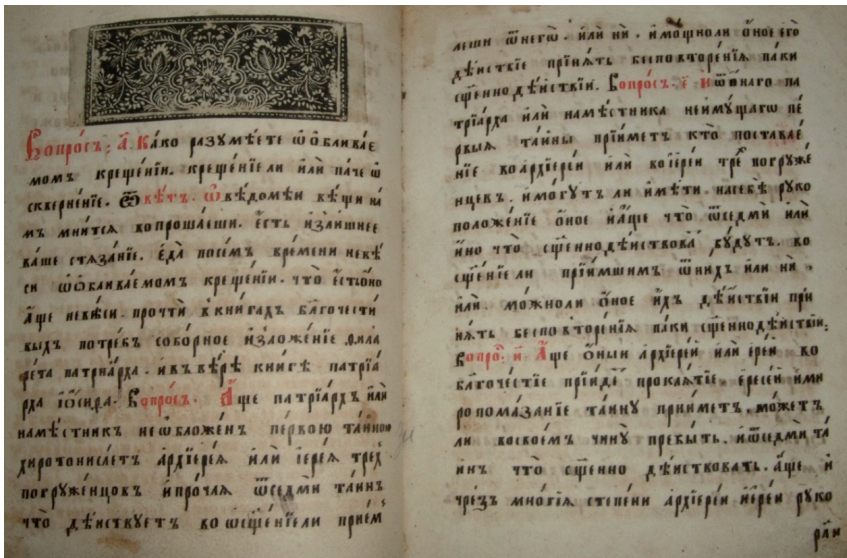 Вопро́съ: а҃. Ка́ко разумѣ́ете ѡ҆ѡ҆блива́е
момъ креще́нїи. креще́нїе ли и҆лѝ па́че ѡ҆
скверне́нїе. Ѿвѣ́тъ. ѡ҆ вѣ́домѣи ве́щи на́
мъ мни́тся вопроша́еши. є҆́сть и҆зли́шнее
ва́ше стяза́нїе. є҆да̀ посе́мъ вре́мени невѣ́
си ѡ҆ѡ҆блива́емомъ креще́нїи. что̀ є҆́сть ѻно
а҆́ще невѣ́си. прочтѝ в кни́гахъ бл҃гочести́
выхъ потре́бъ собо́рное и҆зложе́нїе ѳила
ре́та патриа́рха. и҆ в вѣ́рѣ кни́ге патрїа́
рха і҆ѡ́сифа. Вопро́съ. А҆́ще патрїа́рхъ и҆лѝ
намѣ́стник неѡ҆бложе́нъ пе́рвою та́йною
хиротониса́етъ а҆рхїере́я и҆лѝ і҆ере́я трех̾
погруже́нцовъ и҆ про́чая ѿ седмѝ та́инъ
что̀ дѣ́йствуетъ во ѡ҆сщ҃е́нїе ли прїе́м
леши ѿ него̀. и҆лѝ нѝ. и҆ мо́щно ли ѻ҆́ное є҆го̀
дѣ́йствїе прїня́ть бесповторе́нїя па́ки
сщ҃еннодѣ́йствїи. Вопро́съ. є҃ и҆ ѿ ѻ҆́наго па
трїа́рха и҆лѝ намѣ́стника неиму́щагѡ пе́
рвыя та́йны прїи́метъ кто̀ поставле́
нїе во а҆рхїере́и и҆лѝ во і҆ере́и тре́ погруже́
нцевъ. и҆ мо́гутъ ли и҆мѣ́ти. на себѣ̀ руко
положе́нїе ѻ҆́ное и҆ а҆́ще что̀ ѿ седмѝ и҆лѝ
и҆́но что̀ сщ҃еннодѣ́йствова бу́дутъ. во
сщ҃е́нїе ли прїи́мшимъ ѿ ни́хъ и҆лѝ нѝ.
и҆лѝ. мо́жно ли ѻ҆́ное и҆́хъ дѣ́йствїи при
ня́ть бесповторе́нїя па́ки сщ҃еннодѣ́йствїи;
Вопро́. и҃. А҆́ще ѻ҆́ныи а҆рхїере́й и҆лѝ і҆ере́й во
бл҃гоче́стїе прїи́де прокля́тїе. є҆ре́сей и҆ ми
ропома́занїе та́йну прїи́метъ. мо́жетъ
ли во свое́мъ чи́ну пребы́ть. и҆ ѿ седмѝ та́
инъ что̀ сщ҃енно дѣ́йствовать. а҆́ще и҆
чрез̾ мно́гїя степе́ни а҆рхїере́и і҆ере́и руко